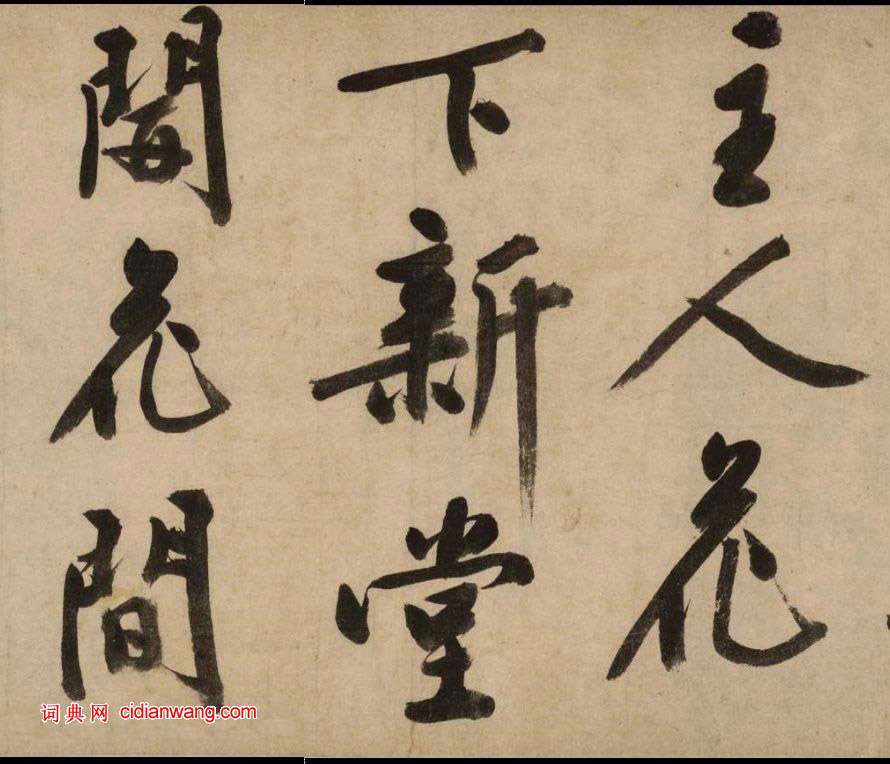 主人花
下新堂
開花間
词典网 cidianwang.com